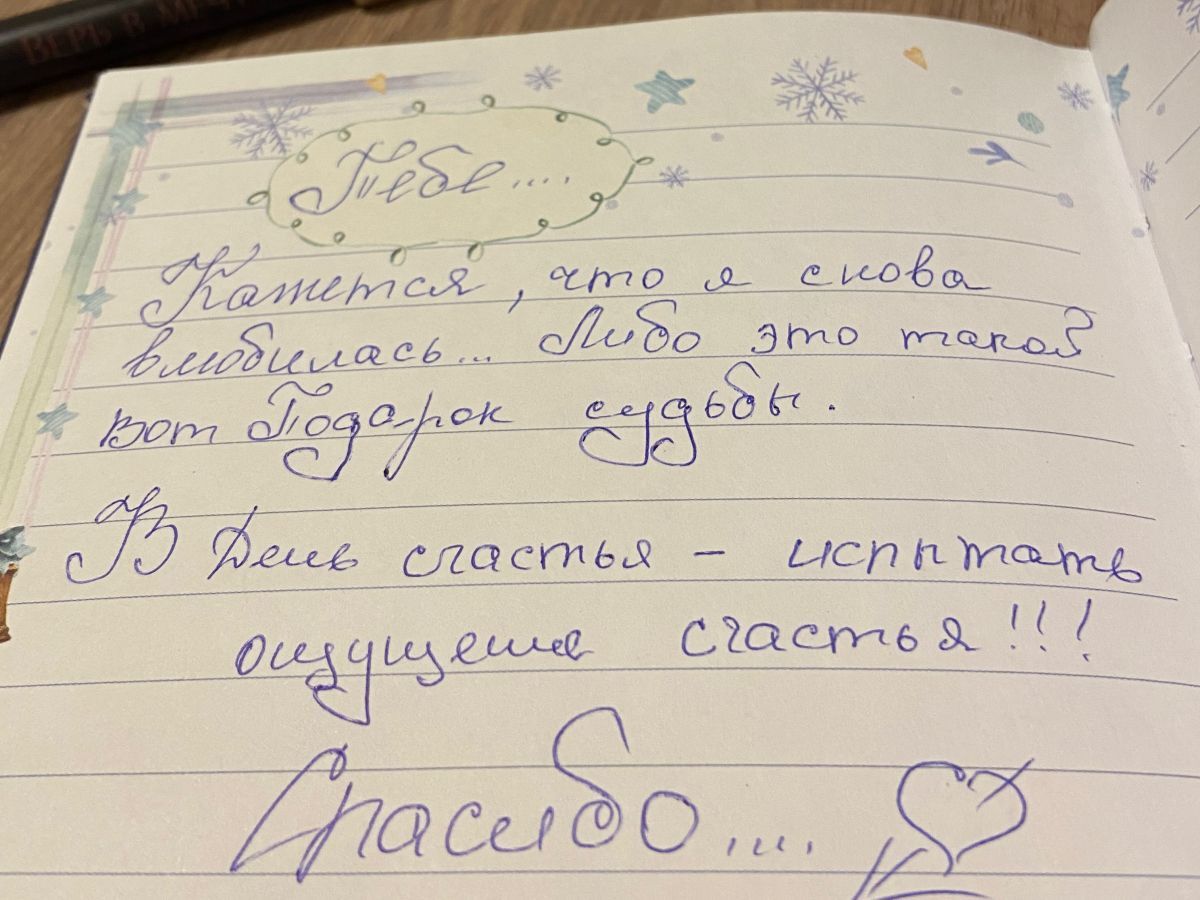 ВЕРЬ В МЕЧТ
Тебе....
Кажется, что я снова
влюбилась... Либо это такой
вот Подарок судьбы.
В День счастья - испытать
ощущение счастья!!!
Спасибо....